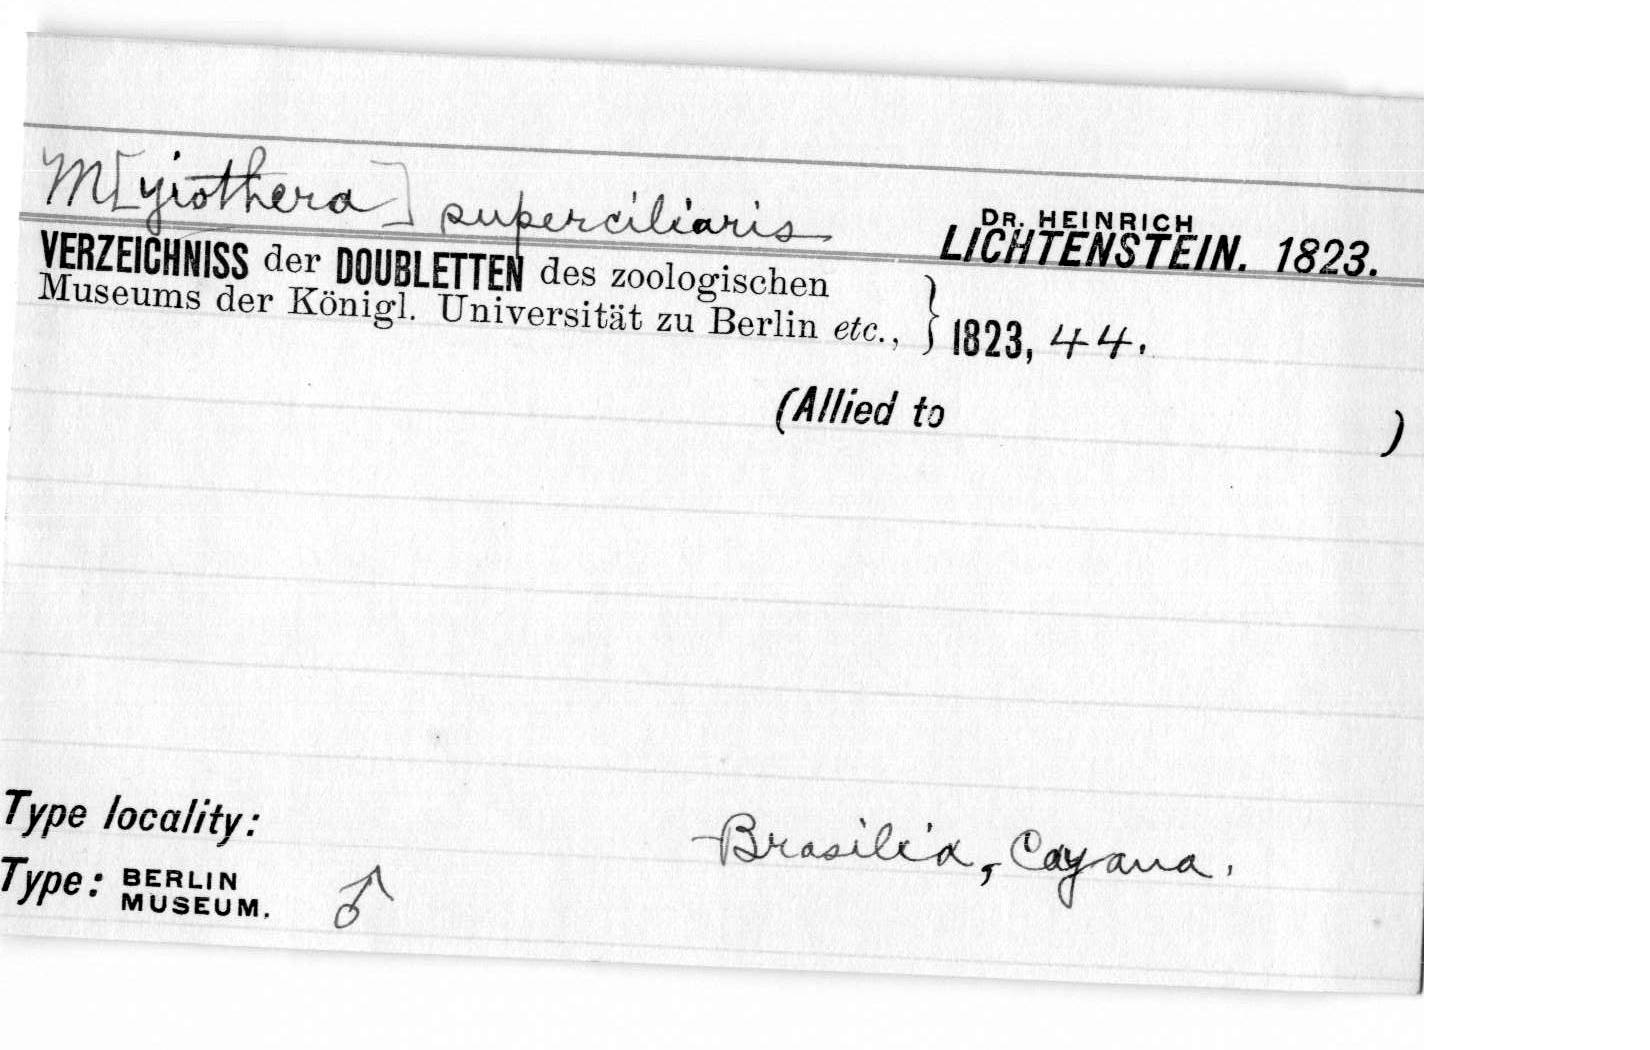 M[yiothera] superciliaris
DR. HEINRICH
LICHTENSTEIN. 1823.
VERZEICHNISS der DOUBLETTEN des zoologischen
Museums der Königl. Universität zu Berlin etc., } 1823, 44.
(Allied to )
Type locality: Brasilia, Cayana.
Type: BERLIN
MUSEUM. ♂